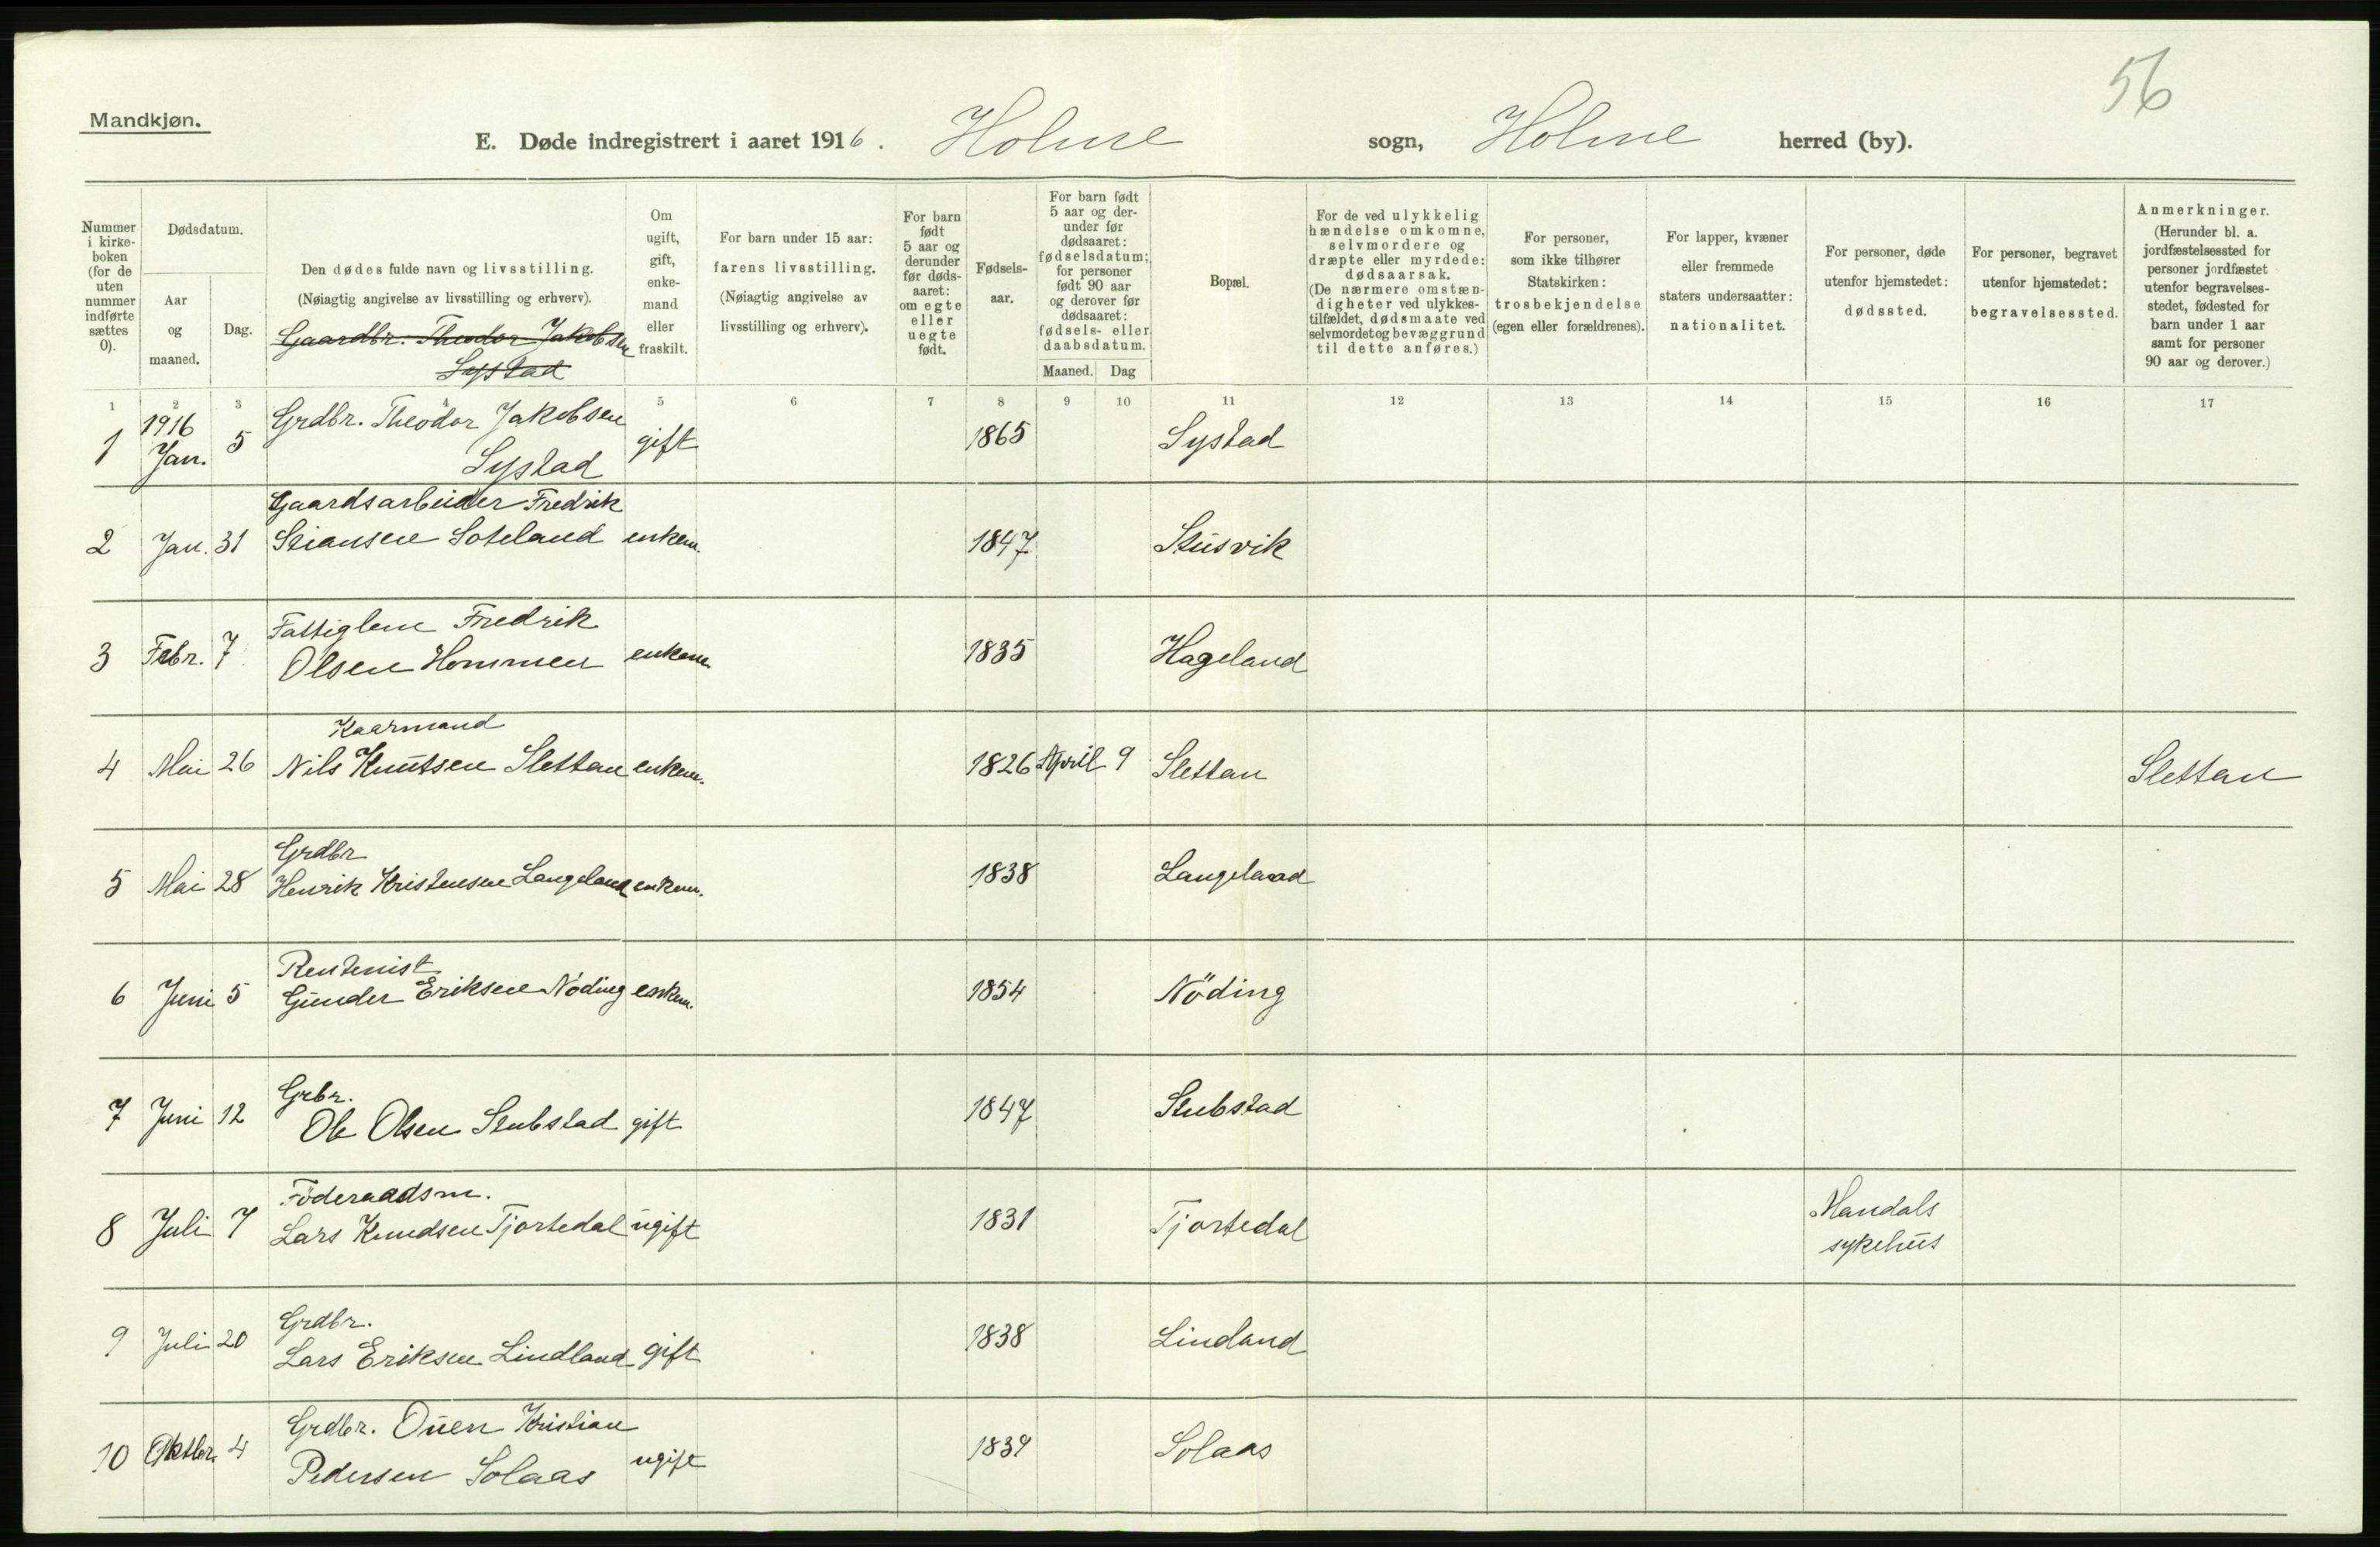 56
Mandkjøn.
E. Døde indregistrert i aaret 1916. Holme sogn, Holme herred (by).
Nummer i kirke- boken (for de uten nummer indførte sættes 0).
Dødsdatum.
Aar og maaned.
Dag.
Den dødes fulde navn og livsstilling.
(Nøiagtig angivelse av livsstilling og erhverv).
Gaardbr. Theodor Jakobsen
Systad
Om ugift, gift, enke- mand eller fraskilt.
For barn under 15 aar: farens livsstilling. (Nøiagtig angivelse av livsstilling og erhverv).
For barn født 5 aar og derunder før døds- aaret: om egte eller uegte født.
Fødsels- aar.
For barn født 5 aar og der- under før dødsaaret: fødselsdatum; for personer født 90 aar og derover før dødsaaret: fødsels- eller daabsdatum.
Maaned. Dag
Bopæl.
For de ved ulykkelig hændelse omkomne, selvmordere og dræpte eller myrdede: dødsaarsak. (De nærmere omstæn- digheter ved ulykkes- tilfældet, dødsmaate ved selvmordet og bevæggrund til dette anføres.)
For personer, som ikke tilhører Statskirken: trosbekjendelse (egen eller forældrenes).
For lapper, kvæner eller fremmede staters undersaatter: nationalitet.
For personer, døde utenfor hjemstedet: dødssted.
For personer, begravet utenfor hjemstedet: begravelsessted.
Anmerkninger. (Herunder bl. a. jordfæstelsessted for personer jordfæstet utenfor begravelses- stedet, fødested for barn under 1 aar samt for personer 90 aar og derover.)
1 2 3 4 5 6 7 8 9 10 11 12 13 14 15 16 17
1916 Grdbr. Theodor Jakobsen
1 Jan. 5 Systad gift 1865 Systad
Gaardsarbeider Fredrik
2 Jan. 31 Stiansen Soteland enkem. 1847 Stusvik
Fattiglem Fredrik
3 Febr. 7 Olsen Hommen enkem. 1835 Hageland
Kaarmand
4 Mai 26 Nils Knutsen Slettan enkem. 1826 April 9 Slettan Slettan
Grdbr
5 Mai 28 Henrik Kristensen Langeland enkem. 1838 Langeland
Rentenist
6 Juni 5 Gunder Eriksen Nöding enkem. 1854 Nöding
Grbr.
7 Juni 12 Ole Olsen Stubstad gift 1847 Stubstad
Föderaadsm.
8 Juli 7 Lars Knudsen Tjortedal ugift 1831 Tjortedal Mandals
sykehus
Grdbr.
9 Juli 20 Lars Eriksen Lindland gift 1838 Lindland
Grdbr. Ouen Kristian
10 Oktbr. 4 Pedersen Solaas ugift 1839 Solaas